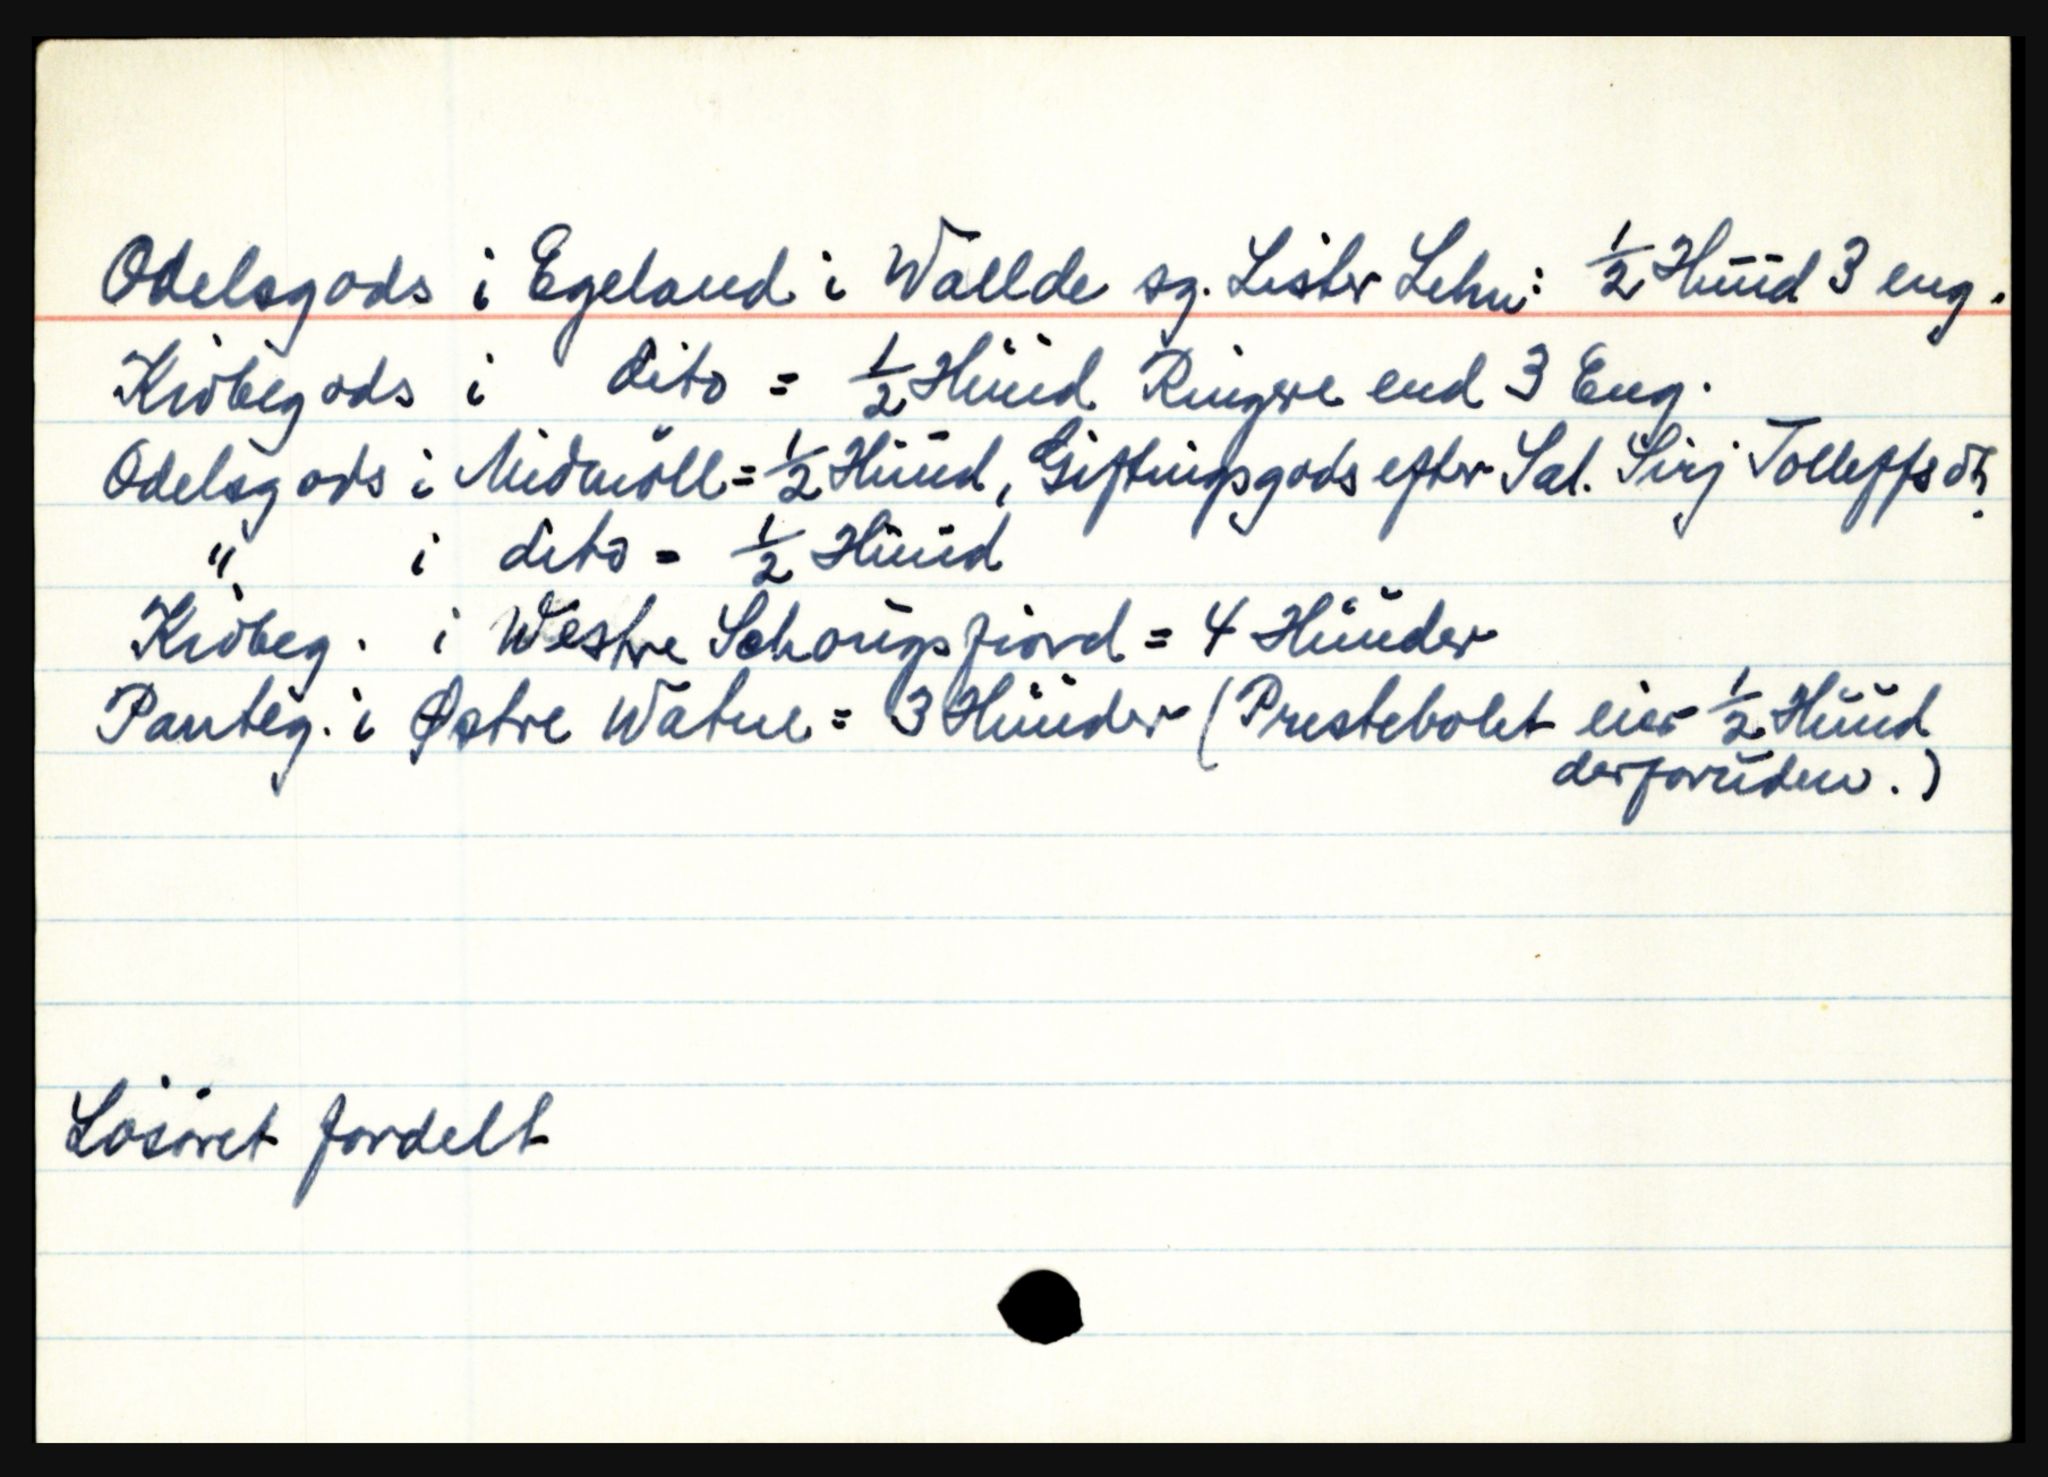 Odelsgods i Egeland i Wallde sg. Lister Lehn: ½ Huud 3 eng.
Kiöbegods i dito = ½ Huud Ringere end 3 Eng.
Odelsgods i Midmöll = ½ Huud, Giftingsgods efter Sal. Sirj Tolleffs dt.
" i dito = ½ Huud
Kiöbeg. i Westre Schougsfiord = 4 Huuder
Panteg. i Østre Watne = 3 Huuder (Prestebolet eier ½ Huud
derforuden.)
Lösöret fordelt